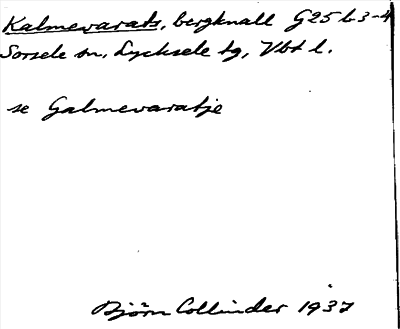 Kalmevarats, bergknall G25 b 3-4
Sorsele sn, Lycksele tg, Vbt l.
se Galmevaratje
Björn Collinder 1937